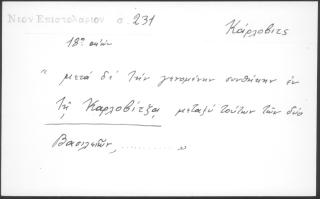 Νεον Επιστολαριον σ 231
Κάρλοβιτς
18ος αιών
" μετά δέ την γενομένην συνθήκην ἐν
τῇ Καρλοβίτζᾳ μεταξύ τούτων τῶν δύο
Βασιλειῶν, .......... "